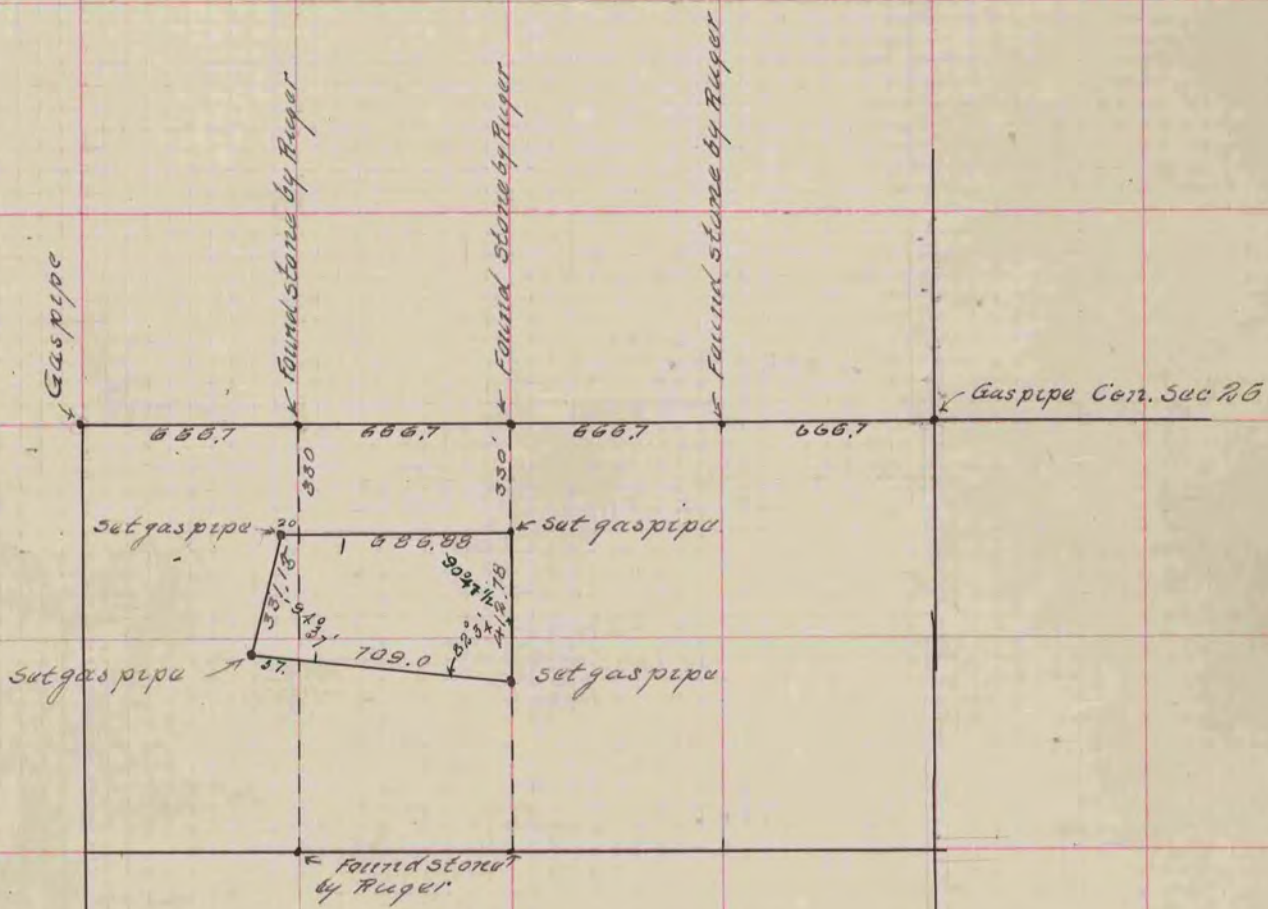 Gaspipe
Found stone by Ruger
Found stone by Ruger
Found stone by Ruger
Gaspipe Cen. Sec 26
666.7
666.7
666.7
666.7
330
330'
Set gaspipe
20
686.88
Set gaspipe
331.18
94° 37'
90°47½
82° 34'
412.78
Set gaspipe
37.
709.0
Set gaspipe
Found stone
by Ruger